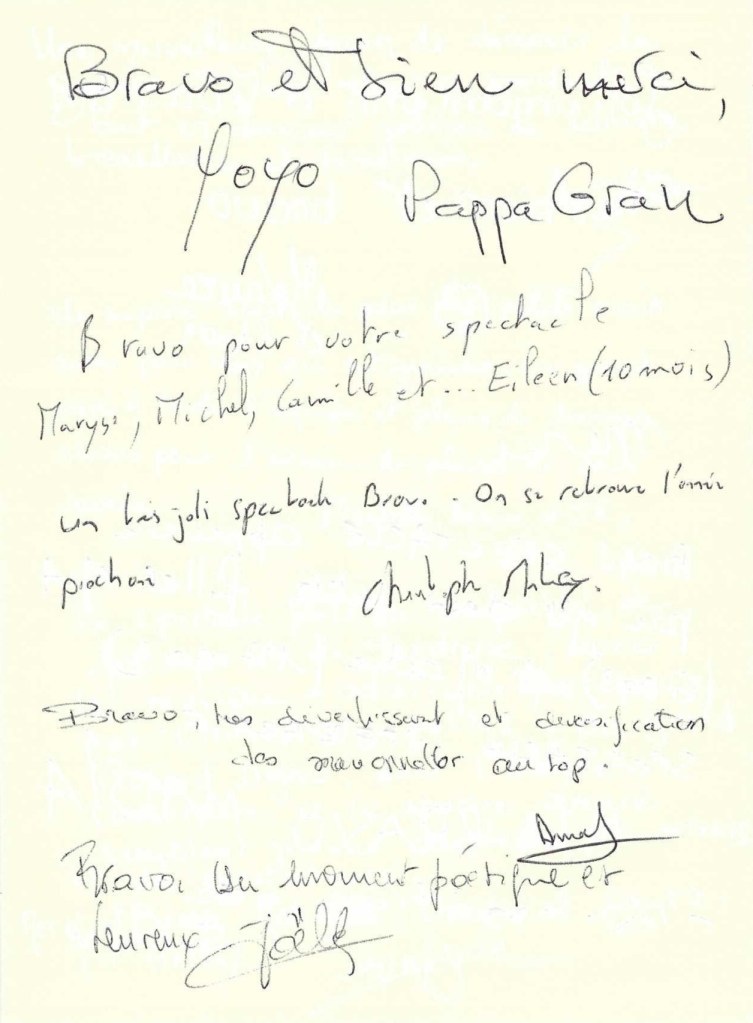 Bravo et bien merci,
Yoyo Pappa Gran
Bravo pour votre spectacle
Maryse, Michel, Camille et... Eileen (10 mois)
un très joli spectacle Bravo. On se retrouve l'année
prochaine
Christophe
Bravo, très divertissant et diversification
des au top.
Bravo. Un moment poétique et
heureux Joëlle